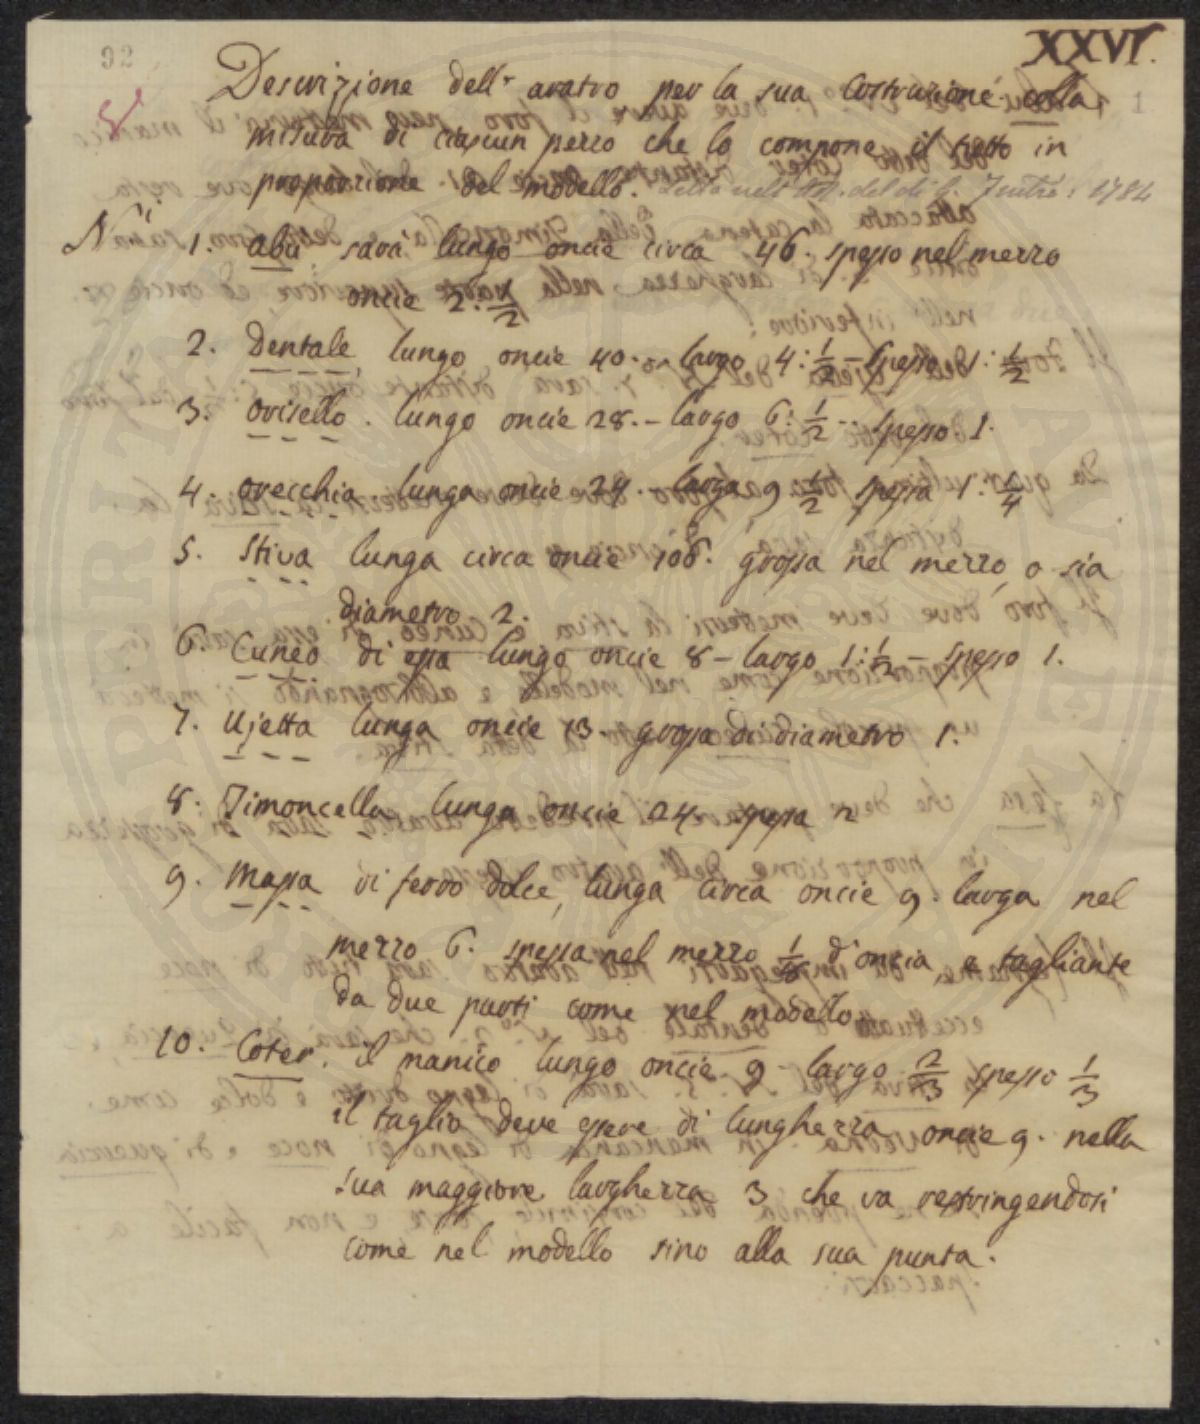 92
XXVI.
1
Descrizione dell' aratro per la sua Costruzione colla
misura di ciascun pezzo che lo compone il tutto in
proporzione del modello. Letta nell' del di 1784
N.i 1. Abu sarà lungo oncie circa 46. spesso nel mezzo
oncie 2. 1/2
2. Dentale, lungo oncie 40. largo 4: 1/2 – spesso 1: 1/2
3. Orisello. lungo oncie 28. – largo 6: 1/2 – spesso 1.
4. Orecchia lunga oncie 24. larga 9 1/2 spessa 1. 1/4
5. Stiva lunga circa oncie 106. grossa nel mezzo, o sia
diametro 2.
6. Cuneo di essa lungo oncie 8 – largo 1: 1/2 – spesso 1.
7. Ujetta lunga oncie 13. grossa di diametro 1.
8. Timoncella lunga oncie 24. spessa 2
9. Massa di ferro dolce, lunga circa oncie 9. larga nel
mezzo 6. spessa nel mezzo d'oncia, e tagliante
da due parti come nel modello
10. Coter. il manico lungo oncie 9 – largo 2/3 spesso 1/3
il taglio deve essere di lunghezza oncie 9. nella
sua maggiore larghezza 3 che va restringendosi
come nel modello sino alla sua punta.